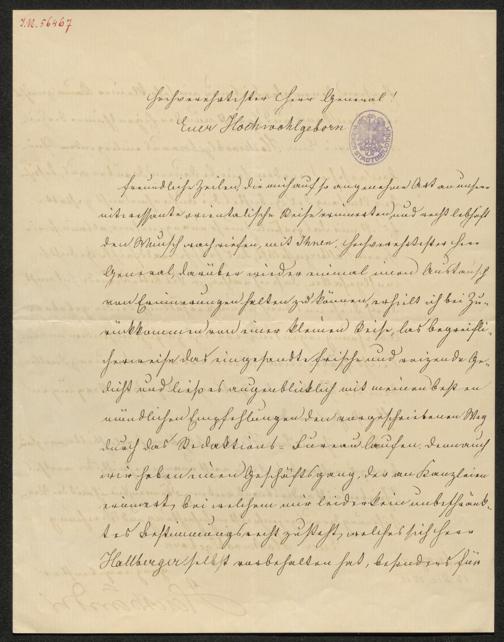 J.N. 56467
Hochverehrtester Herr General!
Euer Hochwohlgeborn
freundliche Zeilen, die mich auf so angenehme Art an unsere
interessante orientalische Reise erinnerten, und recht lebhaft
den Wunsch wachriefen, mit Ihnen, hochverehrtester Herr
General, darüber wieder einmal einen Austausch
von Erinnerungen halten zu können, erhielt ich bei Zu-
rückkommen von einer kleinen Reise, las begreifli-
cherweise das eingesandte frische und reizende Ge-
dicht und ließ es augenblicklich mit meinen besten
mündlichen Empfehlungen den vorgeschriebenen Weg
durch das Redaktions-Bureau laufen, denn auch
wir haben einen Geschäftsgang, der an Kanzleien
erinnert, bei welchem mir leider kein unbeschränk-
tes Bestimmungsrecht zusteht, welches sich Herr
Hallberger selbst vorbehalten hat, besonders für